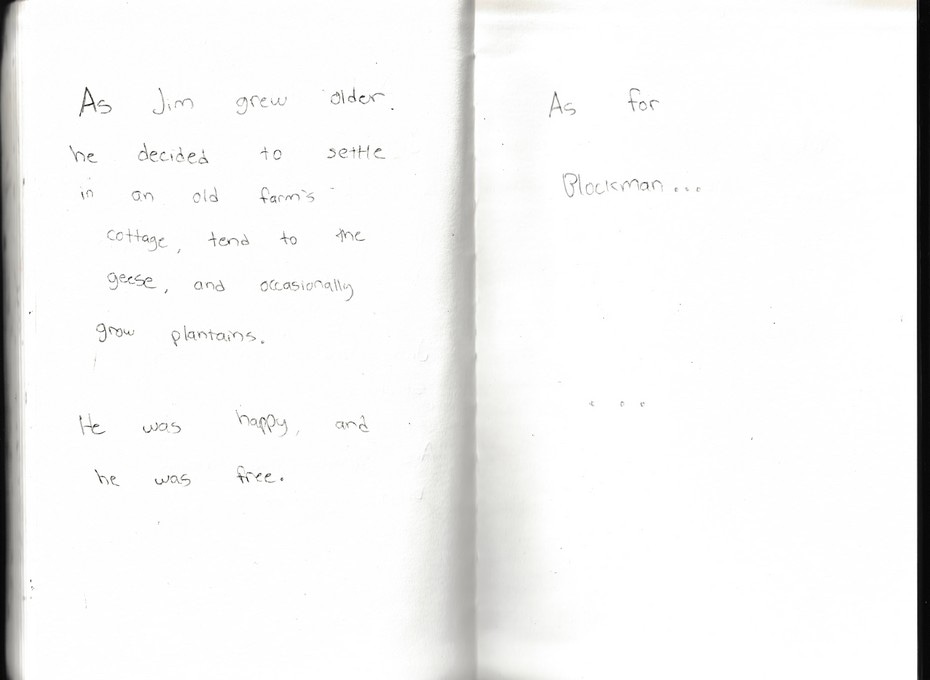 As Jim grew older.
he decided to settle
in an old farm's
cottage, tend to the
geese, and occasionally
grow plantains.
He was happy, and
he was free.
As for
Blockman...
...